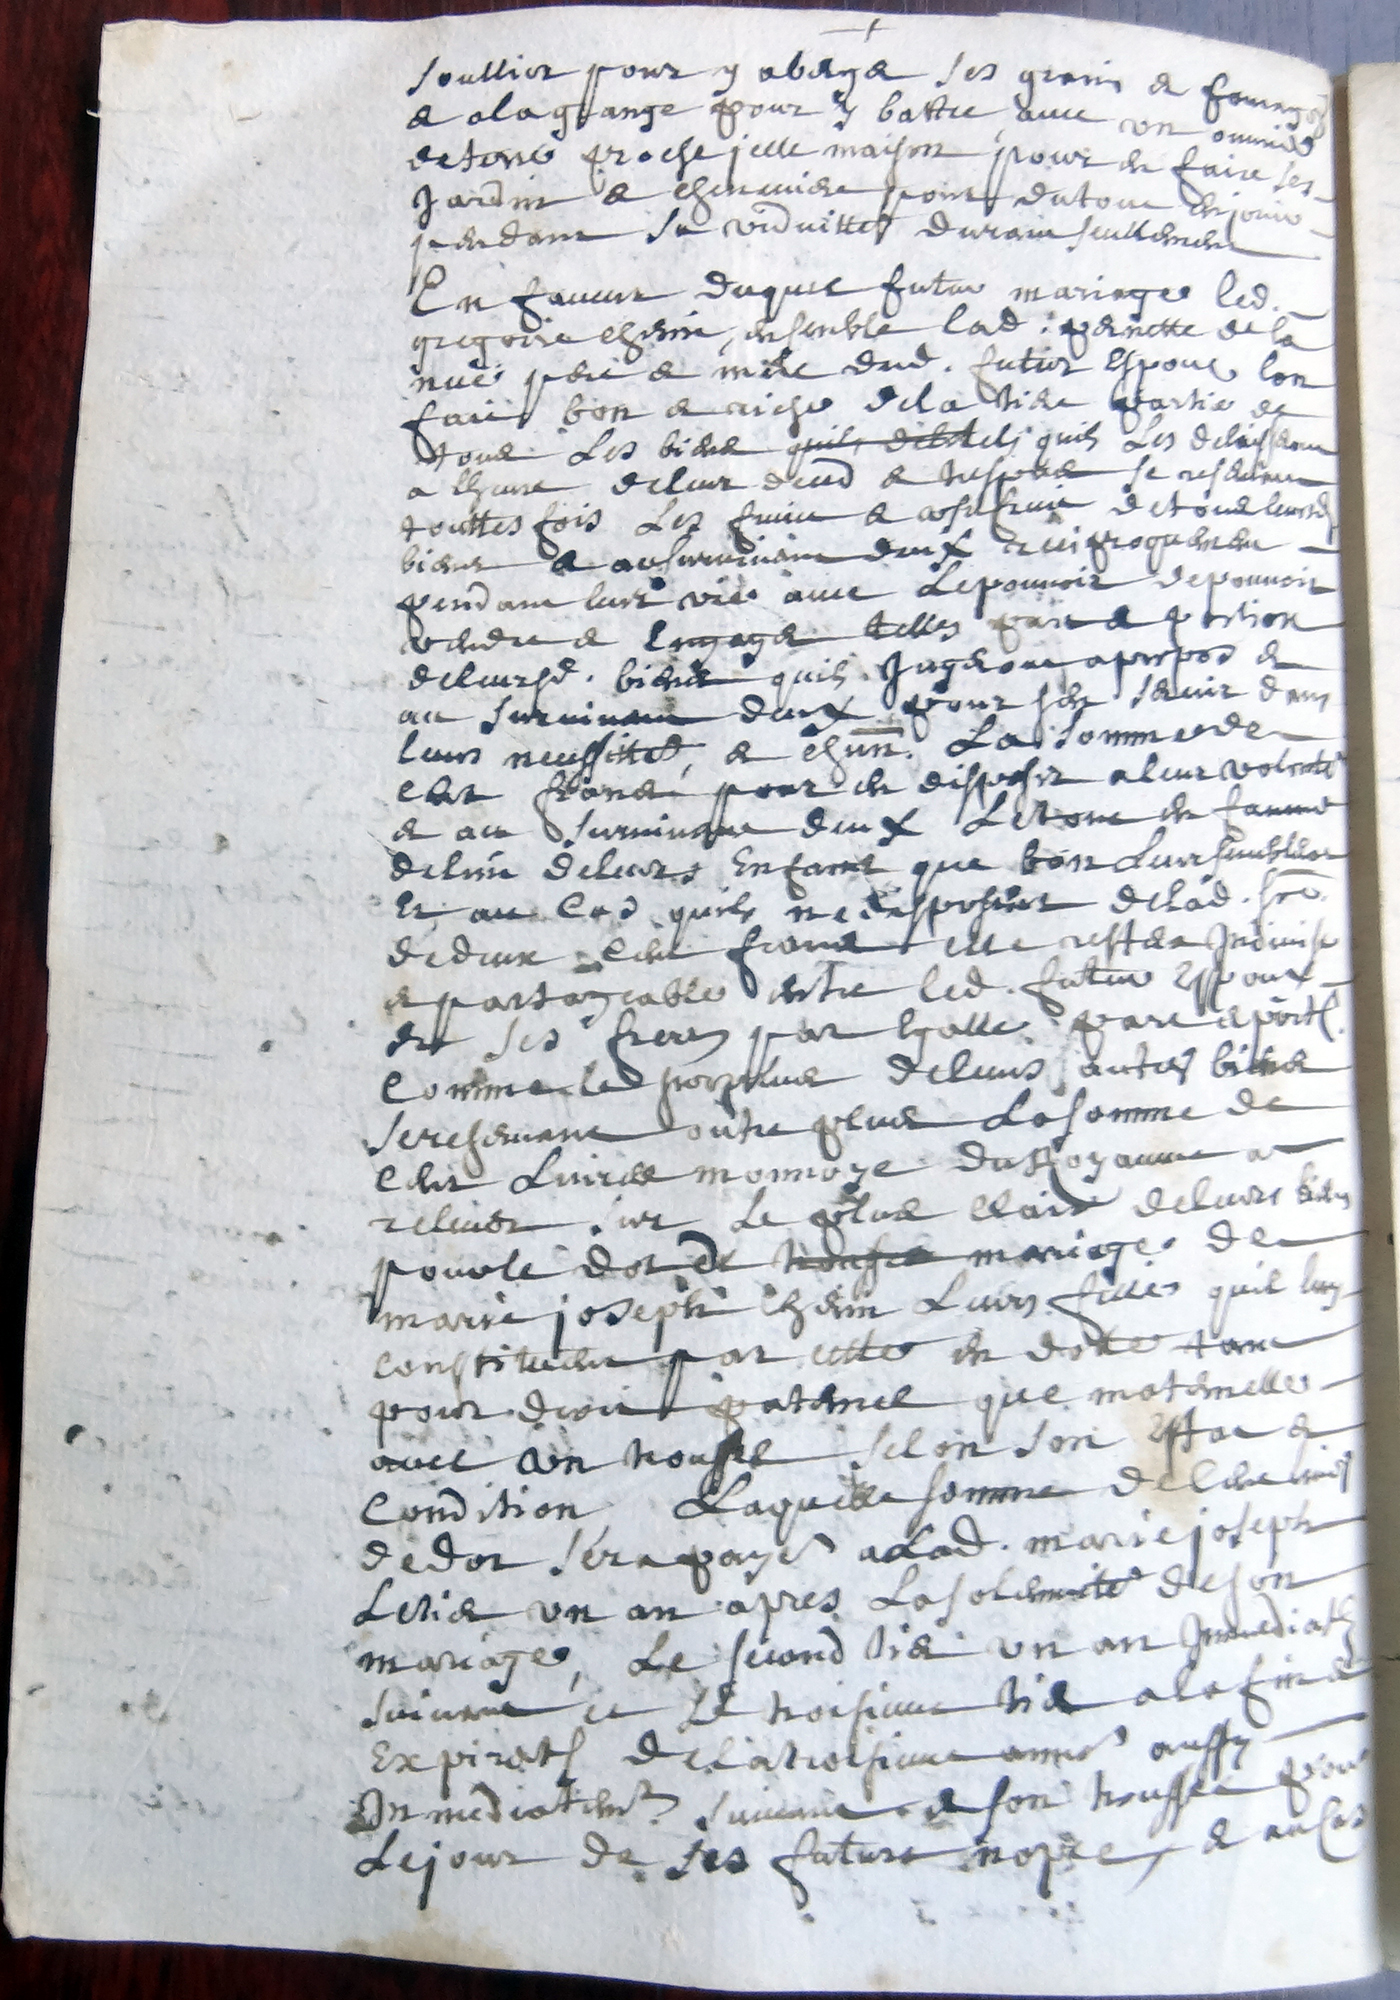 soullier pour y abergé ses grains & fourages
& a la grange pour y battre, avec un ouvrée
de terre proche jcelle maison pour en faire ses
Jardin & cheneviere pour du tout en jouir
pendant sa viduitté durant seullement
En faveur duquel futur mariage led.
gregoire chemin, ensemble lad. pernette de la
nue pere & mere dud. futur Espoux lon
fait bon & riche de la tiere partie de
tous Les biens quils Les delaisseront
a lheure de leur deced & trespas se reservant
touttes fois Les fruits & usufruit de tous leursd
biens & au survivant deux reciproquement
pendant leur vie avec Le pouvoir de pouvoir
vendre & Engager telles part & portion
de leursd. biens quils Jugeront a propos &
au survivant deux pour sen servir dans
leurs necessitted, & chun. La somme de
Cent francs pour en disposer a leur volonté
& au survivant deux Le tout en faveur
de lun de leurs Enfant que bon Leur semblera
Et au Cas quils ne disposent de lad. sōe.
de deux Cent francs elle restera Indivise
& partageable entre led. futur Espoux
et ses freres par Egalle part & port.
Comme le surplus de leurs autres biens
se reservant outre plus La somme de
Cent Livres monnoye du Royaume a
relever sur Le plus clair de leurs biens
pour le dot et trousse mariage de
marie joseph Chemin Leurs fille quil luy
constituent par cette en dotte tant
pour droit paternel que maternelle
avec un troussel selon son Estat &
Condition Laquelle somme de Cent livres
de dot sera payé a Lad. marie joseph
Le tier un an apres La solemnité de son
mariage, Le second tier un an Immediat.
suivant, et Le troisieme tier a la fin &
Expirat. de la troisieme année aussy
Immediatemt. suivant & son troussel pour
Le jour de ses future nopce, & au Cas